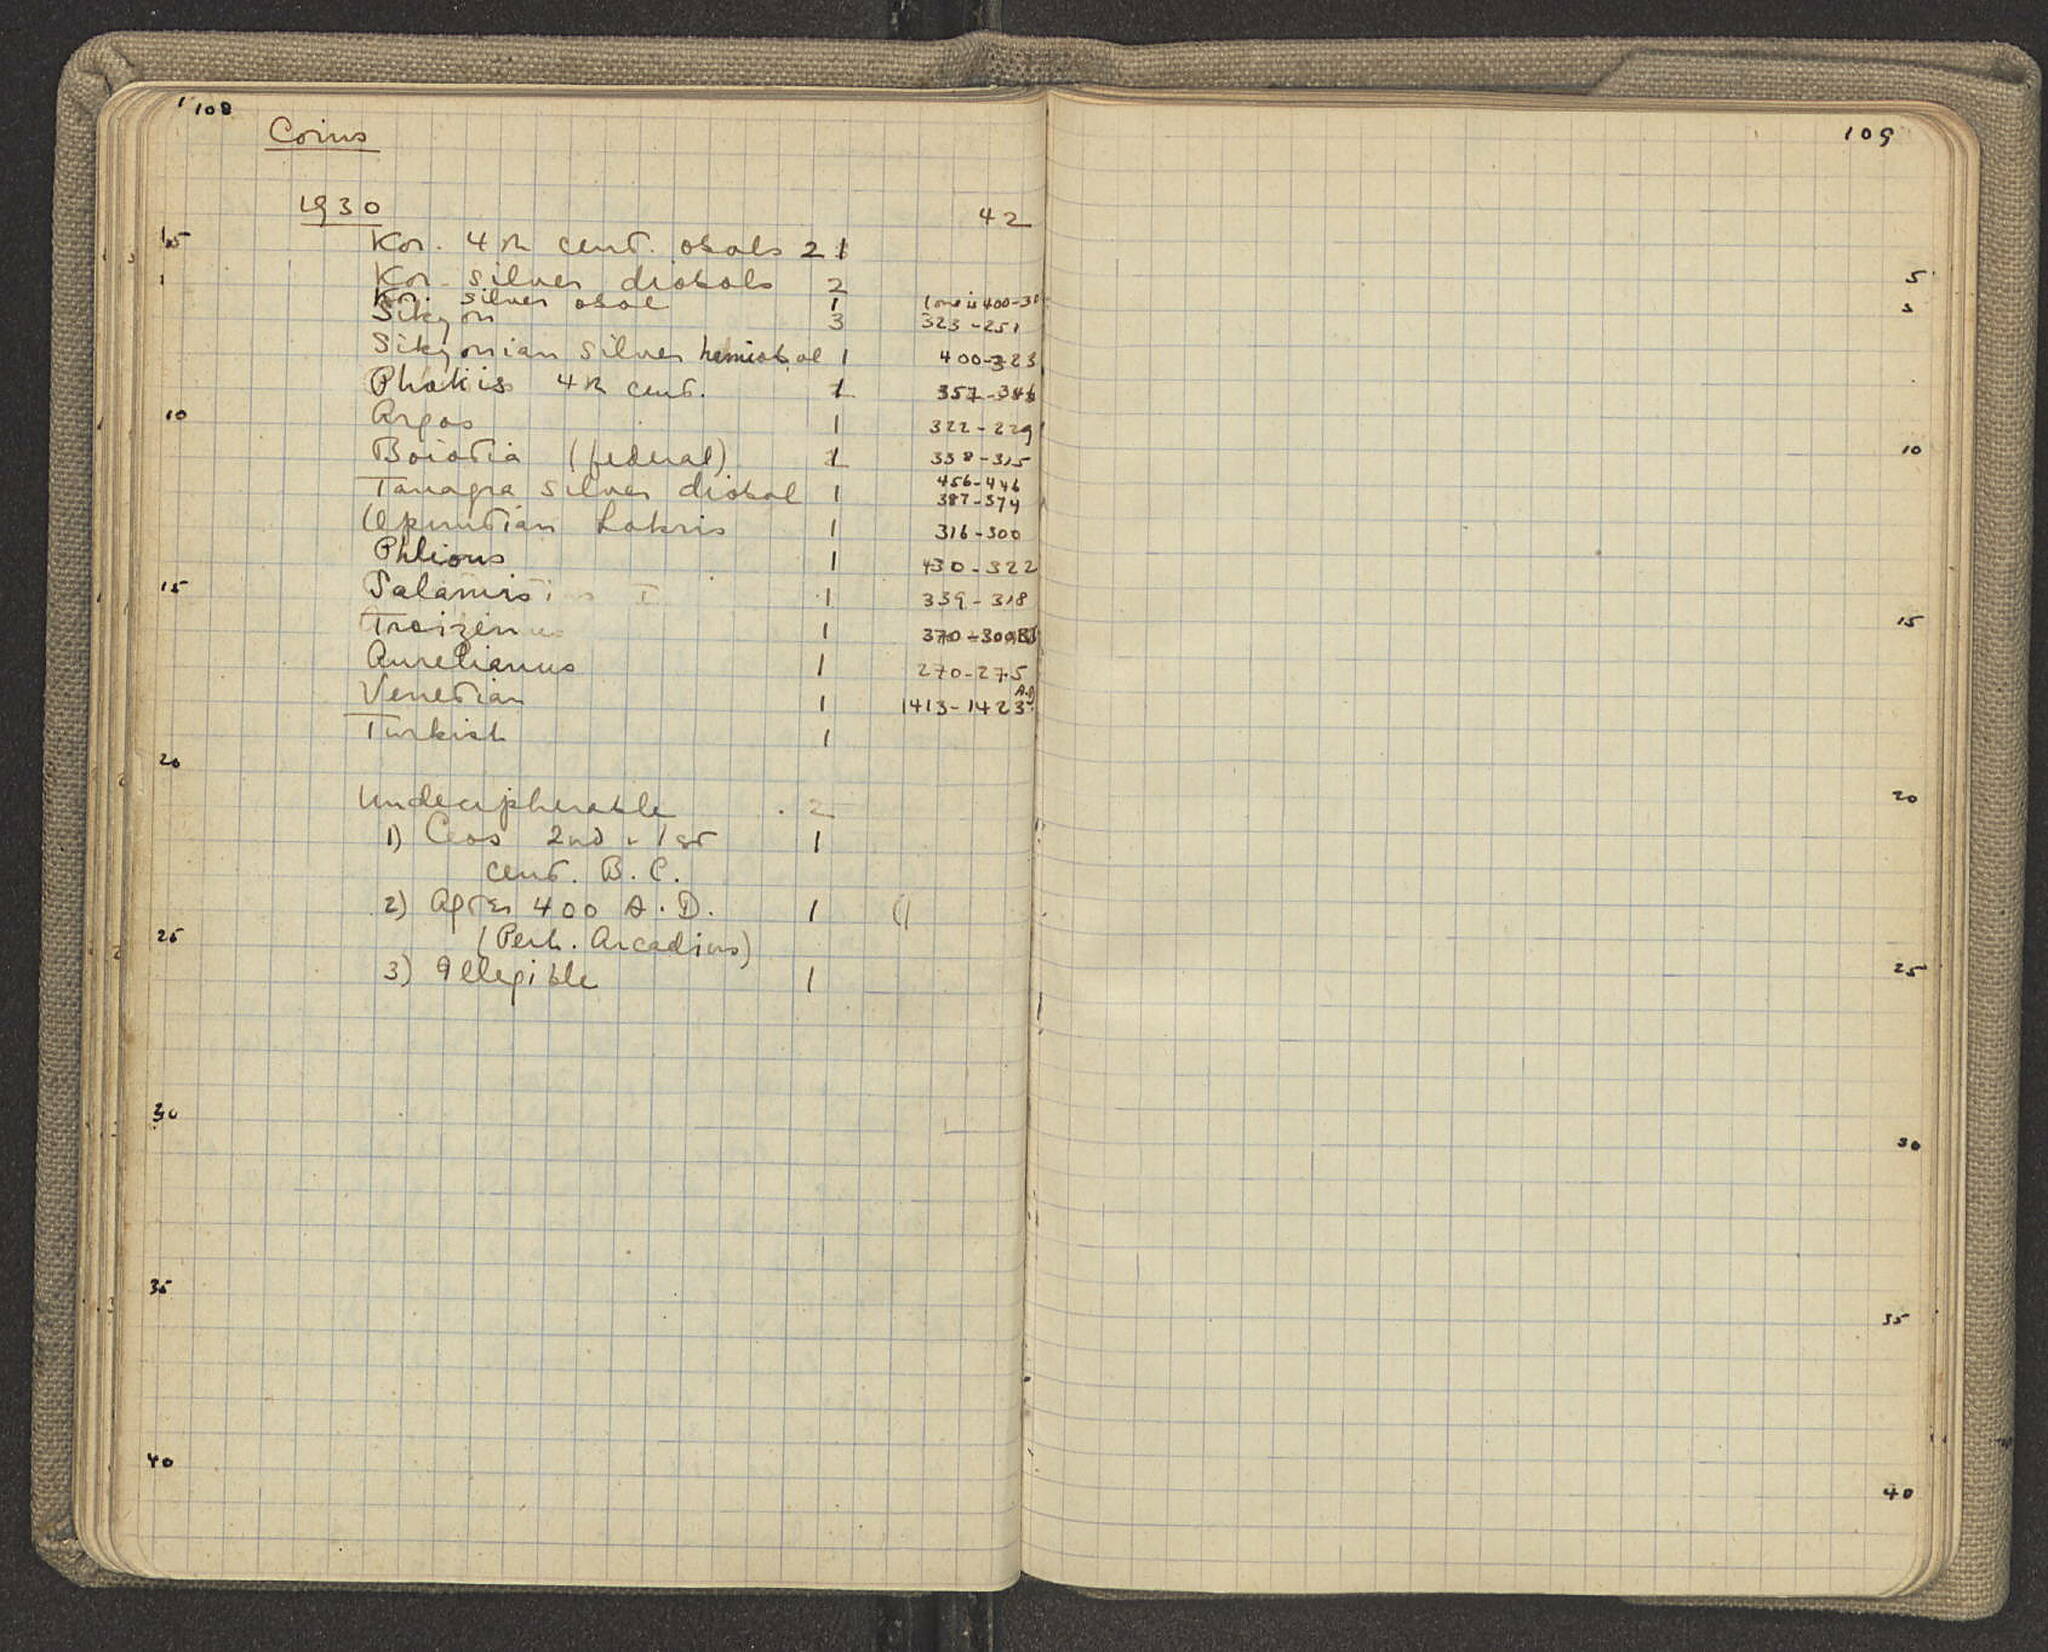 108
Coins
1930 42
Kor. 4th cent. obols 21
Kor. silver diobols 2
Kor. silver obol 1 (one is 400-
Sikyon 3 323-251
Sikyonian silver hemiobol 1 400-323
Phokis 4th cent. 1 357-346
Argos 1 322-229
Boiotia (federal) 1 338-315
Tanagra silver diobol 1 456-446
387-374
Opuntian Lokris 1 316-300
Phlious 1 430-322
Salamis 1 339-318
Troizen 1 370-300
Aurelianus 1 270-275
Venetian 1 1413-1423 A.D.
Turkish 1
Undecipherable 2
1) Ceos 2nd - 1st 1
cent. B.C.
2) After 400 A.D. 1
(Perh. Arcadius)
3) Illegible 1
5
1
10
15
20
25
30
35
40
109
5
5
10
15
20
25
30
35
40